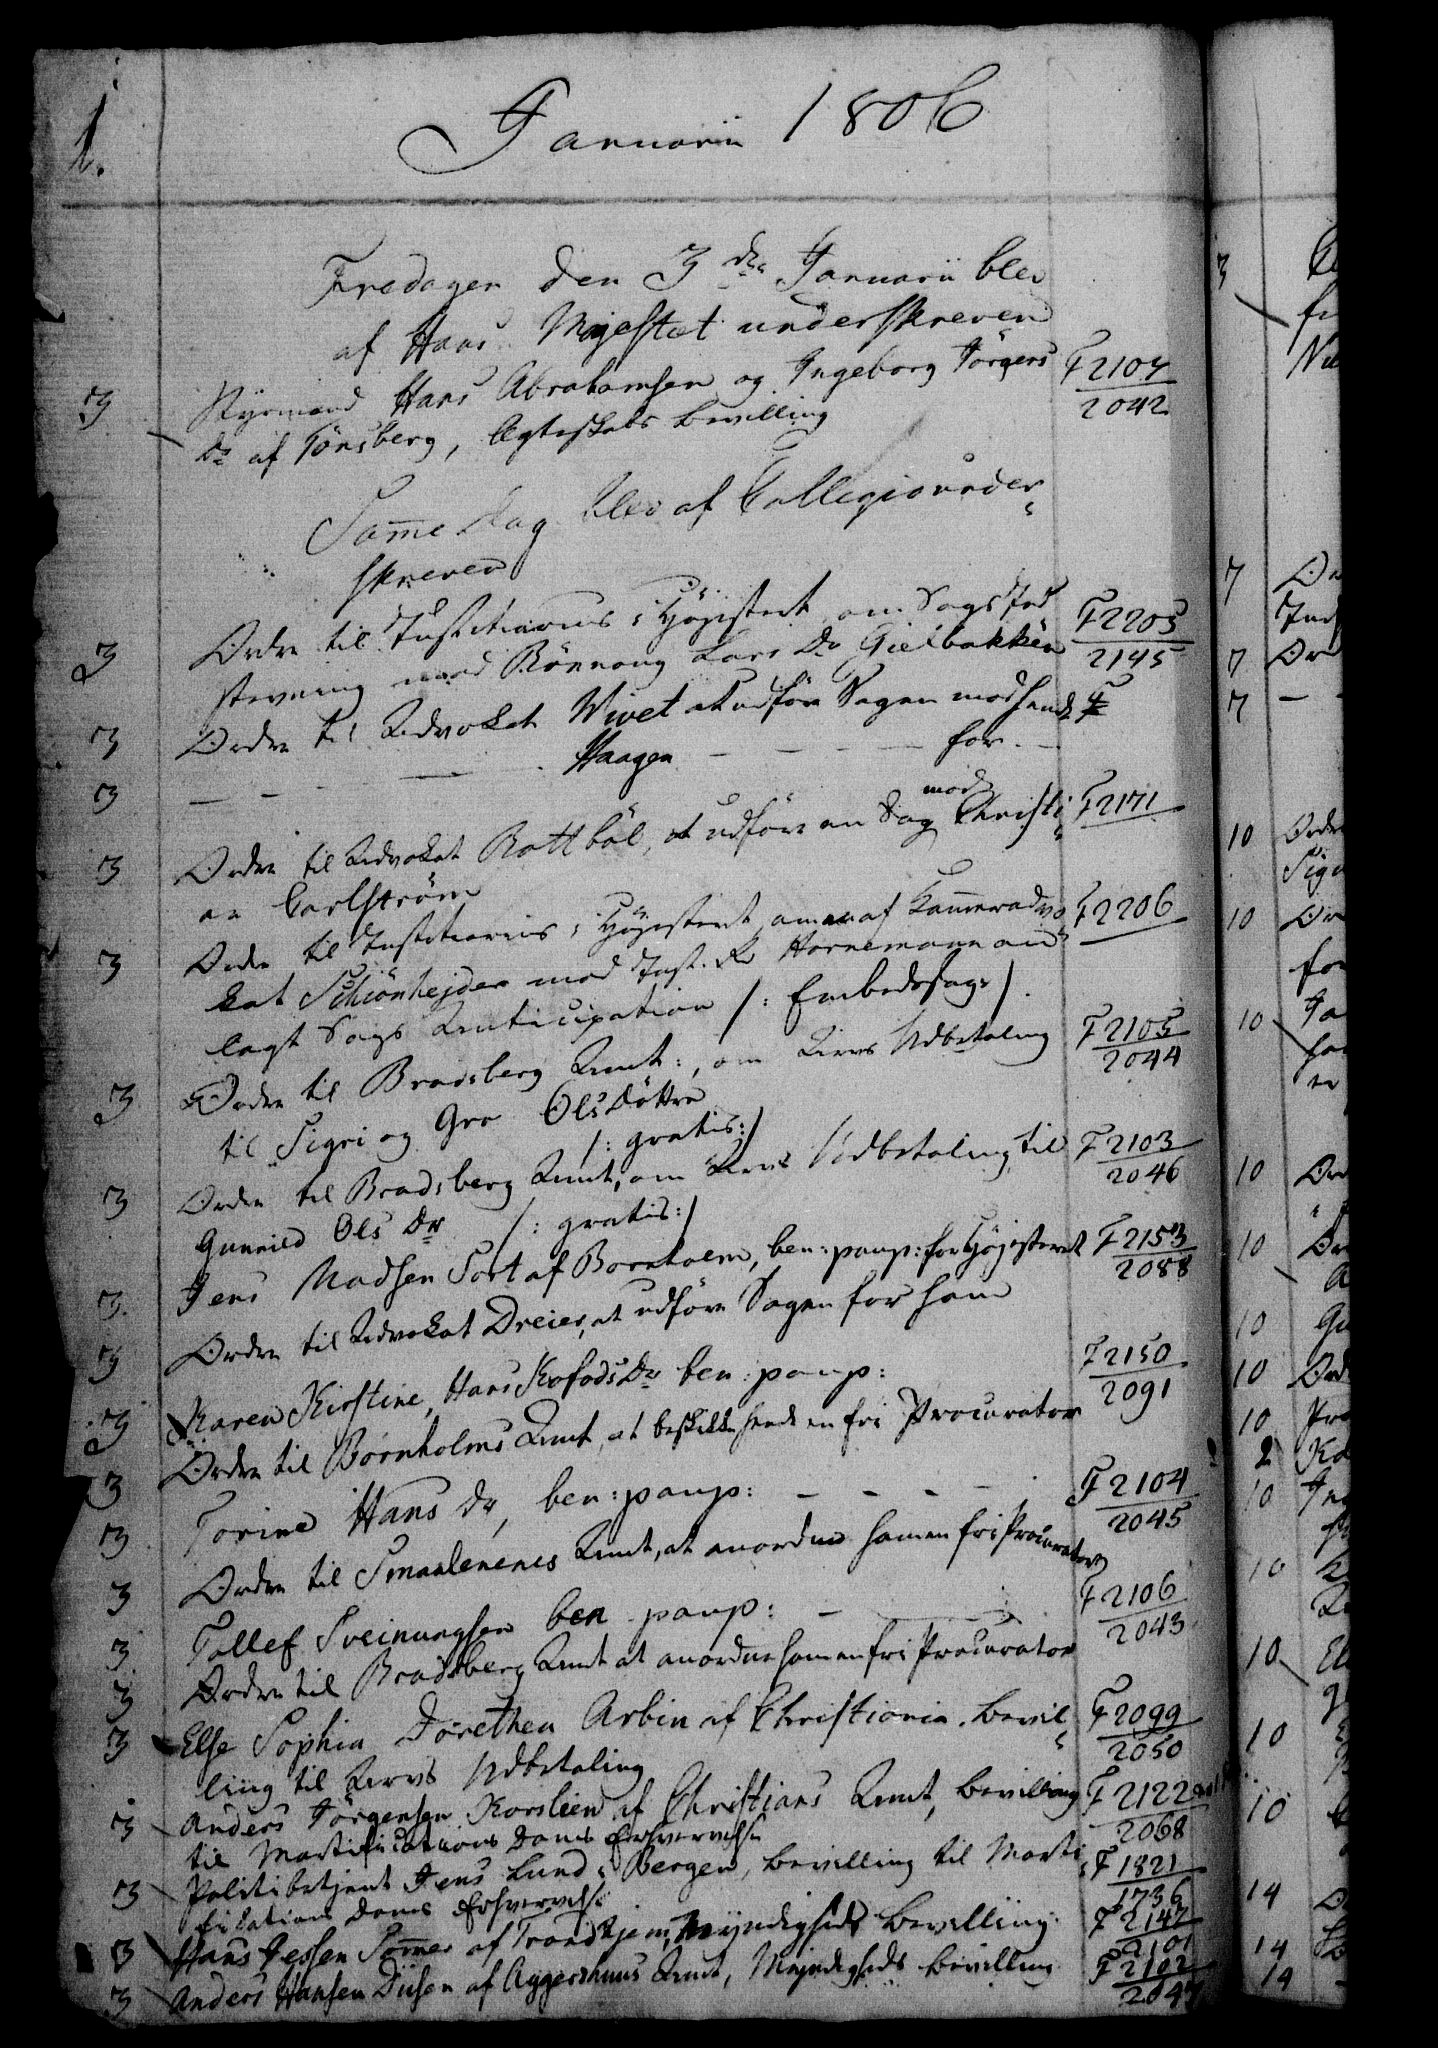 1.
Januarii 1806
Fredagen den 3die Januarii blev
af Hans Majestæt underskreven
3 Styrmand Hans Abrahamsen og Ingeborg Jörgens F2107
Dr af Tönsberg, Ægteskabs Bevilling 2042
Samme Dag blev af Collegio under
skreven
3 Ordre til Justitiarius i Höjesteret om Sags Ind F2205
stevning mod Rönnoug Lars Dr Gielbakken 2145
3 Ordre til Advokat Wivet at udföre Sagen mod hende F
3 — — — Haagen — — — for —
3 Ordre til Advokat Rottböl, at udföre en Sag mod Christi F2171
an Carlström
3 Ordre til Justitiarius i Höjesteret om en af Kammeradvo F2206
kat Schiönhejder mod Just. R. Hornemann an
lagt Sags Anticipation /: Embedssag :/
3 Ordre til Bradsberg Amt, om Arvs Udbetaling F2105
til Sigri og Gro Olsdöttre 2044
/: gratis :/
3 Ordre til Bradsberg Amt, om Arvs Udbetaling til F2103
Gunnild Ols Dr /: gratis :/ 2046
3. Jens Madsen Sort af Bornholm, ben: paup: for Höjesteret F2153
2088
3 Ordre til Advokat Dreier, at udföre Sagen for ham
3 Karen Kirstine, Hans Kofods Dr ben: paup: F2150
2091
3 Ordre til Bornholms Amt, at beskikke hende en fri Procurator
3 Torine Hans Dr, ben: paup: — — — — F2104
2045
3 Ordre til Smaalenenes Amt, at anordne hamen fri Procurator
3 Tollef Sveinungsen ben paup: — F2106
2043
3 Ordre til Bradsberg Amt at anordne ham en fri Procurator
3 Else Sophia Dorethea Arbin af Christiania. Bevil F2099
ling til Arvs Udbetaling 2050
3 Anders Jörgensen Korslien af Christians Amt, Bevilling F2122
til Mortifications Doms Erhvervelse 2068
3 Politibetjent Jens Lund i Bergen, Bevilling til Morti F1821
fications Doms Erhvervelse 1736
3 Hans Jessen Sommer af Trondhjem, Myndigheds Bevilling F2147
2101
3 Anders Hansen Diisen af Aggershuus Amt, Myndigheds Bevilling F2102
2047
3
7
7
7
10
10
10
10
10
10
10
10
2
10
10
10
10
10
14
14
14